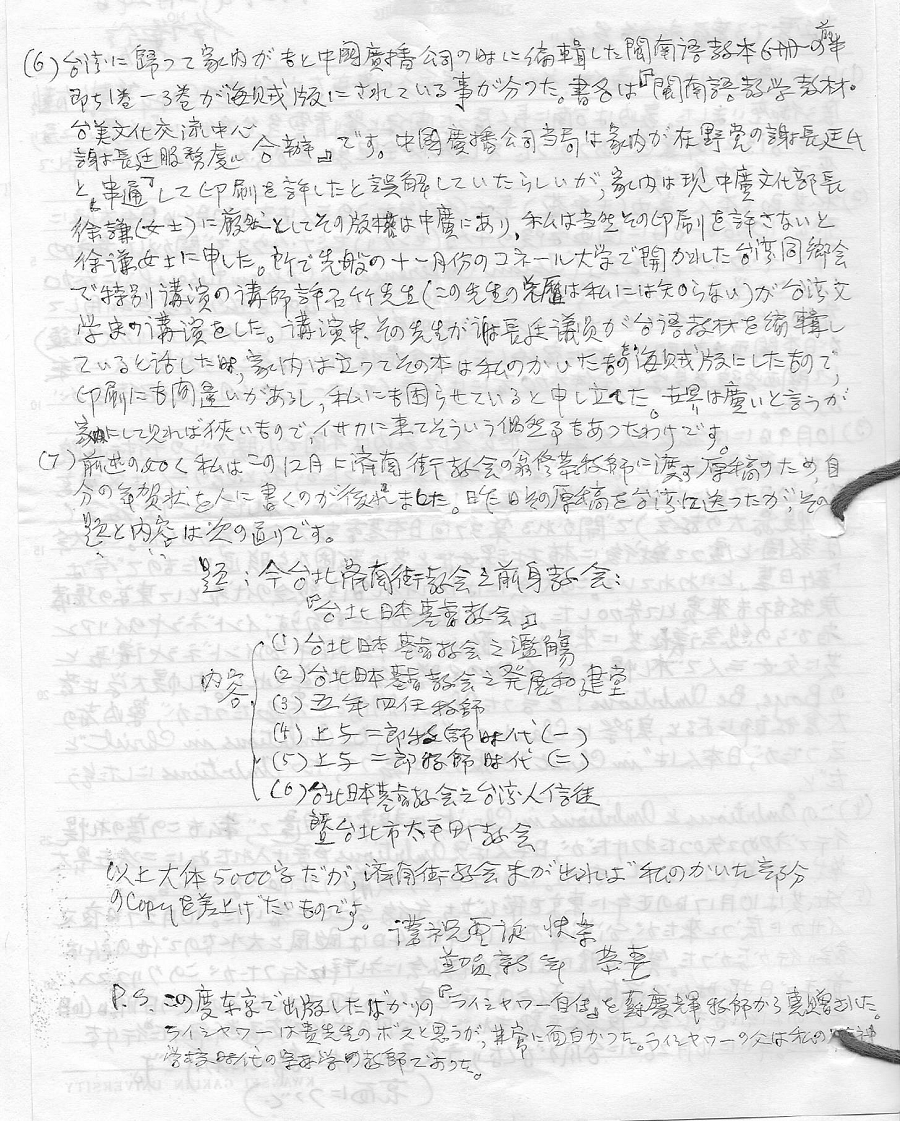 (6) 台湾に帰って家内が昔と中國廣播公司の時に編輯した閩南語教本6冊の前半
即ち1巻－3巻が海賊版にされている事が分つた。書名は『閩南語教学教材・
台美文化交流中心
謝長廷服務處 合辦』です。中國廣播公司当局は家内が在野党の謝長廷氏
と『串通』して印刷を許したと誤解していたらしいが、家内は現中廣文化部長
徐謙(女士)に厳然としてその版権は中廣にあり、私は当然その印刷を許さないと
徐謙女士に申した。所で先般の十一月份のコネール大学で開かれた台湾同郷会
で特別講演の講師許石竹先生(この先生の栄歴は私には知らない)が台湾文
学史の講演をした。講演中、その先生が謝長廷議員が台語教材を編輯し
ていると話した時、家内は立つてその本は私のかいたもの海賊版にしたもので、
印刷にも間違いがあるし、私にも困らせていると申し立てた。世界は廣いと言うが
家内にして見れば狭いもので、イサカに来てそういう偶然事もあつたわけです。
(7) 前述の如く私はこの12月に済南街教会の翁修恭牧師に渡す原稿のため、自
分の年賀状を人に書くのが後れました。昨日その原稿を台湾に送つたが、その
題と内容は次の通りです。
題：今台北済南街教会之前身教会：
『台北日本基督教会』
(1) 台北日本基督教会之濫觴
内容 (2) 台北日本基督教会之発展和建堂
(3) 五年四任牧師
(4) 上与二郎牧師時代(一)
(5) 上与二郎牧師時代(二)
(6) 台北日本基督教会之台湾人信徒
暨台北市太平町教会
以上大体5000字だが、済南街教会史が出れば私のかいた部分
のCopyを差上げたいものです。
謹祝聖誕 快楽
並賀新年 恭喜
P.S. この度東京で出版したばかりの『ライシャワー自伝』を蘇慶輝牧師から恵贈された。
ライシャワーは貴先生のボスと思うが、非常に面白かつた。ライシャワーの父は私の神
学校時代の学の教師であつた。